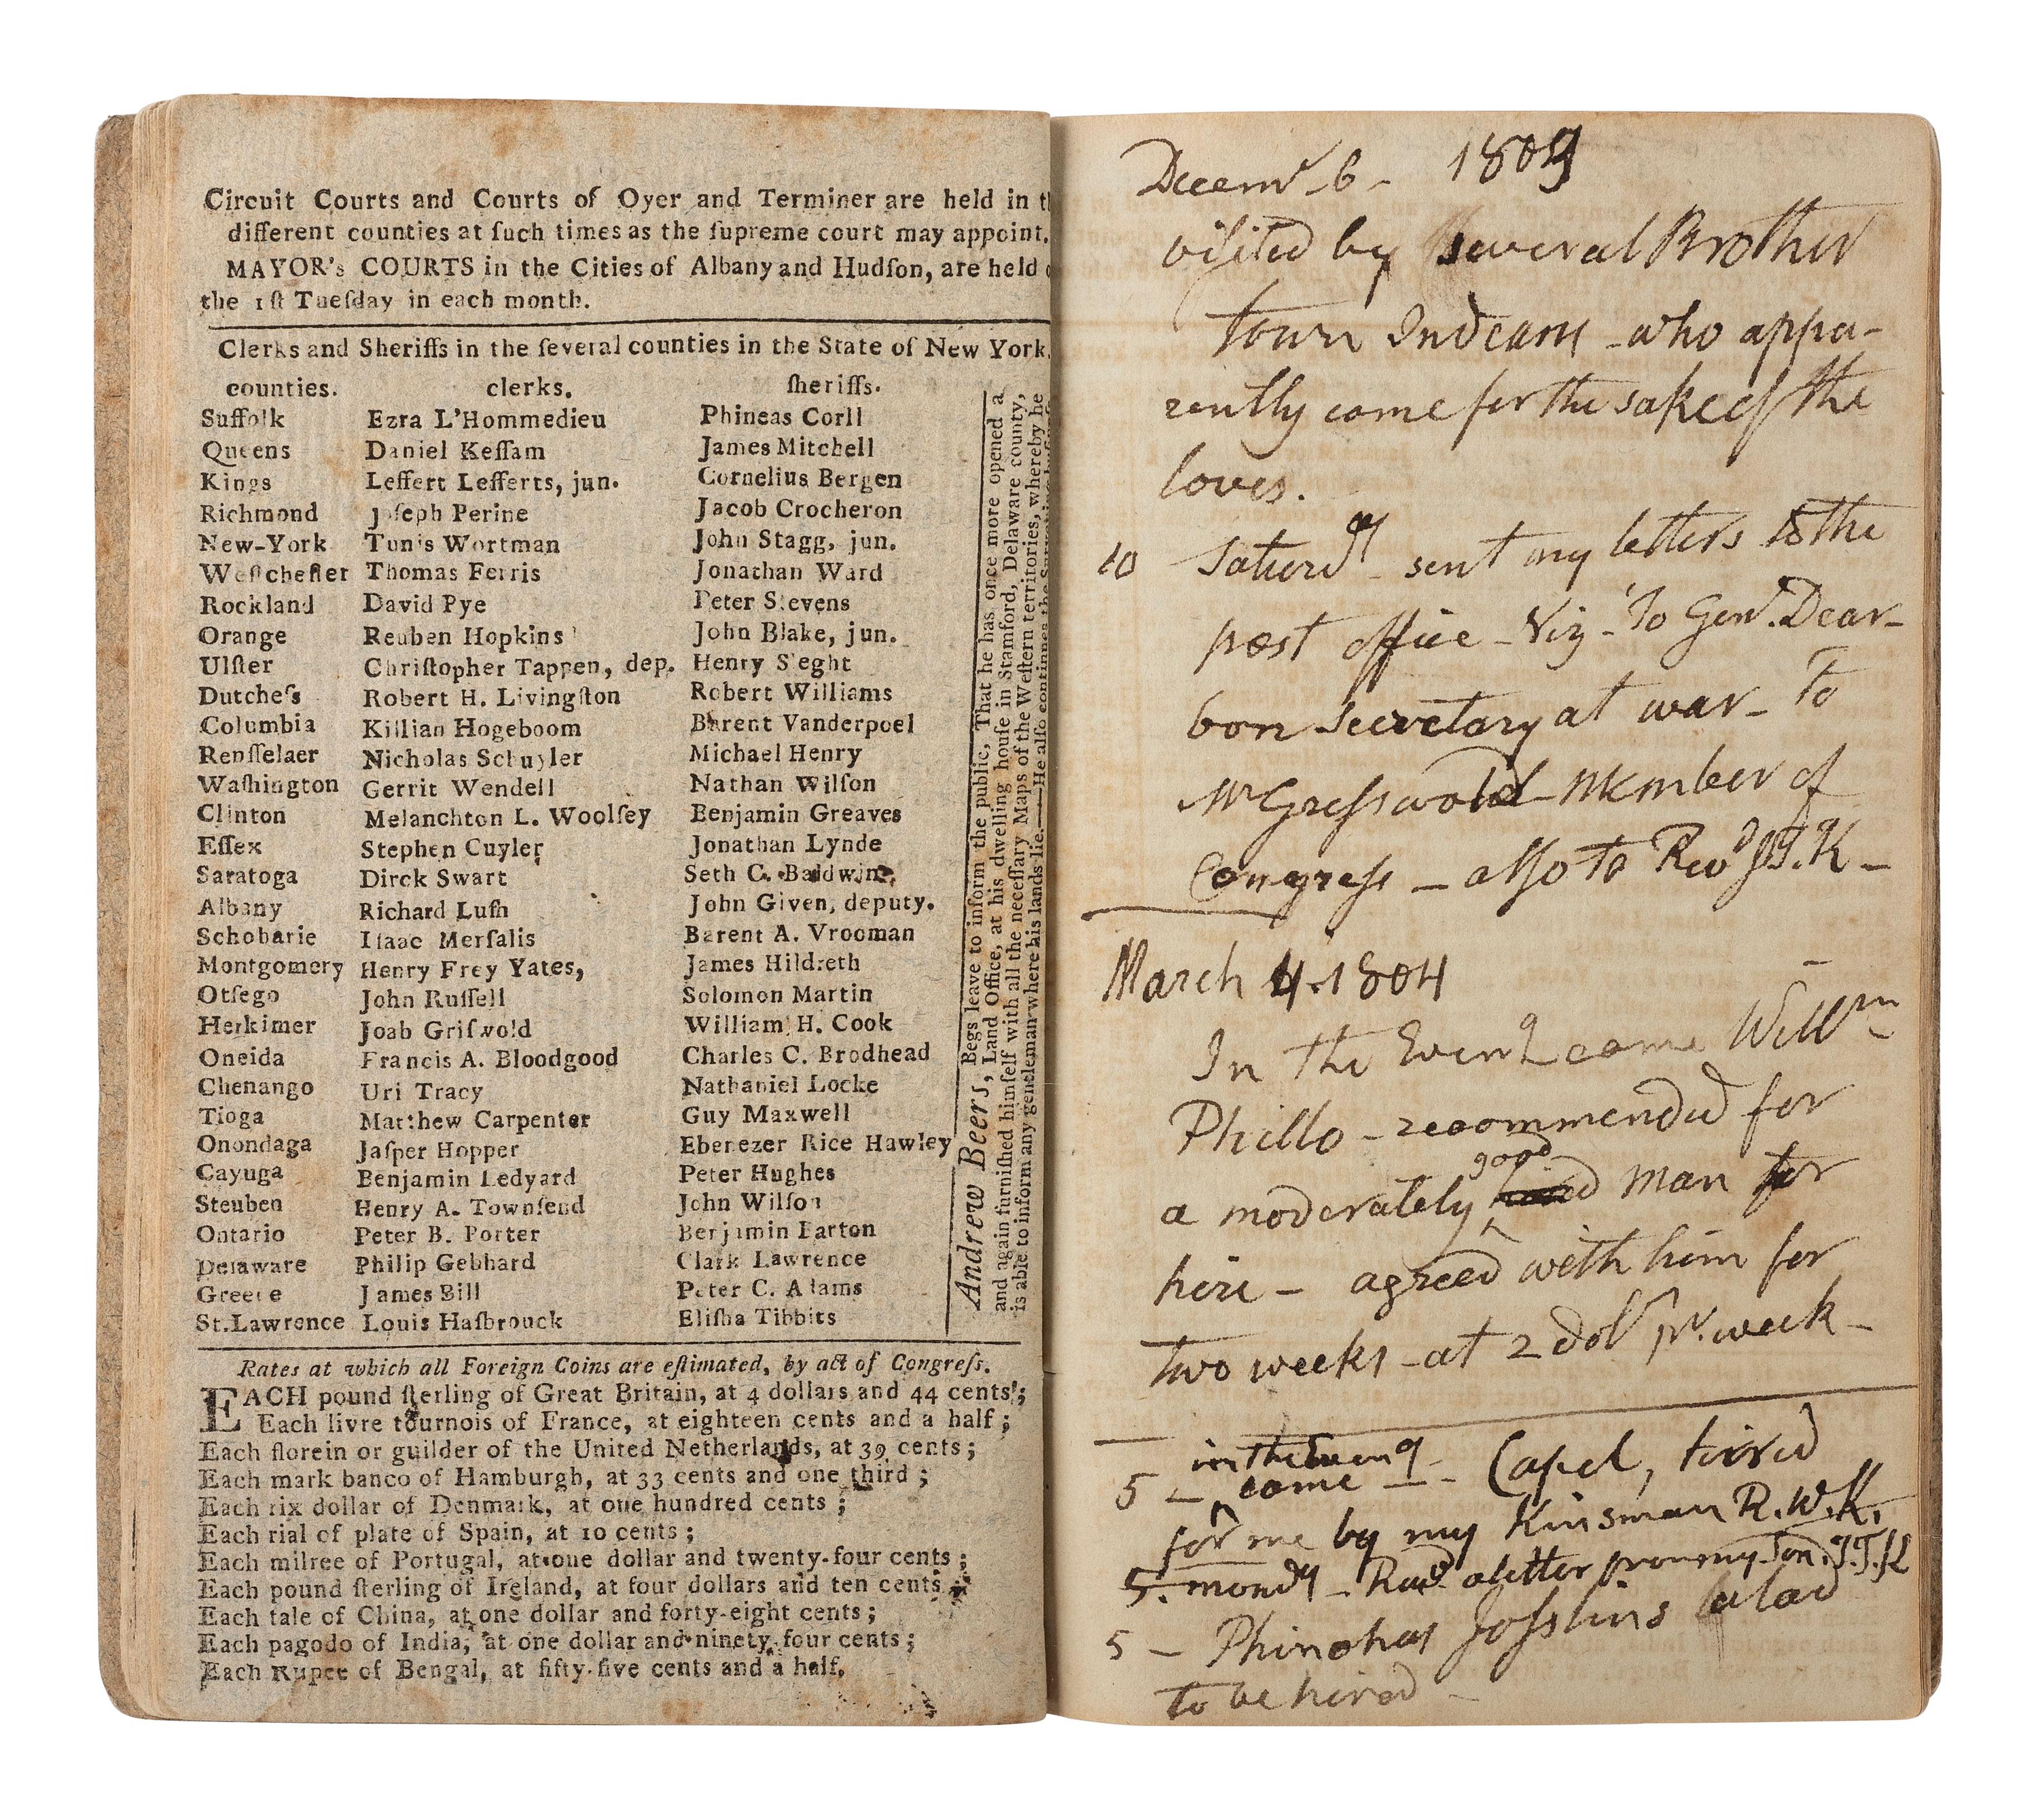 Circuit Courts and Courts of Oyer and Terminer are held in th
different counties at ſuch times as the ſupreme court may appoint.
MAYOR's COURTS in the Cities of Albany and Hudſon, are held o
the 1ſt Tueſday in each month.
Clerks and Sheriffs in the ſeveral counties in the State of New York.
counties. clerks. ſheriffs.
Suffolk Ezra L'Hommedieu Phineas Corll
Queens Daniel Keſſam James Mitchell
Kings Leffert Lefferts, jun. Cornelius Bergen
Richmond Joſeph Perine Jacob Crocheron
New-York Tunis Wortman John Stagg, jun.
Weſtcheſter Thomas Ferris Jonathan Ward
Rockland David Pye Peter Stevens
Orange Reuben Hopkins John Blake, jun.
Ulſter Chriſtopher Tappen, dep. Henry Sleght
Dutcheſs Robert H. Livingſton Robert Williams
Columbia Killian Hogeboom Barent Vanderpoel
Renſſelaer Nicholas Schuyler Michael Henry
Waſhington Gerrit Wendell Nathan Wilſon
Clinton Melanchton L. Woolſey Benjamin Greaves
Eſſex Stephen Cuyler Jonathan Lynde
Saratoga Dirck Swart Seth C. Baldwin,
Albany Richard Luſh John Given, deputy.
Schoharie Iſaac Merſalis Barent A. Vrooman
Montgomery Henry Frey Yates, James Hildreth
Otſego John Ruſſell Solomon Martin
Herkimer Joab Griſwold William H. Cook
Oneida Francis A. Bloodgood Charles C. Brodhead
Chenango Uri Tracy Nathaniel Locke
Tioga Matthew Carpenter Guy Maxwell
Onondaga Jaſper Hopper Ebenezer Rice Hawley
Cayuga Benjamin Ledyard Peter Hughes
Steuben Henry A. Townſend John Wilſon
Ontario Peter B. Porter Benjamin Barton
Delaware Philip Gebhard Clark Lawrence
Greene James Bill Peter C. Adams
St.Lawrence Louis Haſbrouck Eliſha Tibbits
Andrew Beers, Begs leave to inform the public, That he has once more opened a
Land Office, at his dwelling houſe in Stamford, Delaware county,
and again furniſhed himſelf with all the neceſſary Maps of the Weſtern territories, whereby he
is able to inform any gentleman where his lands lie.——He alſo continues the
Rates at which all Foreign Coins are eſtimated, by act of Congreſs.
EACH pound ſterling of Great Britain, at 4 dollars and 44 cents;
Each livre tournois of France, at eighteen cents and a half;
Each florein or guilder of the United Netherlands, at 39 cents;
Each mark banco of Hamburgh, at 33 cents and one third;
Each rix dollar of Denmark, at one hundred cents;
Each rial of plate of Spain, at 10 cents;
Each milree of Portugal, at one dollar and twenty-four cents;
Each pound ſterling of Ireland, at four dollars and ten cents;
Each tale of China, at one dollar and forty-eight cents;
Each pagodo of India, at one dollar and ninety four cents;
Each Rupee of Bengal, at fifty-five cents and a half.
Decemr 6 - 1803
viſited by several Brother
town Indeans - who appa-
rently come for the sake of the
loves.
10 Saturdy - sent my letters to the
post office - Viz - To Genl. Dear-
born Secretary at war - To
Mr Greſswold - Member of
Congreſs - alſo to Revd J.T.K -
March 4. 1804
In the Eveng came Willm
Phillo - recommended for
a moderately good man for
hire - agreed with him for
two weeks - at 2 dolr pr. week -
in the Eveng
5 - came - - Capel, hired
for me by my Kinsman R.W.K.
5. mondy - Recd a letter from my Son. J.T.K
5 - Phinehas Joſslins a lad
to be hired -